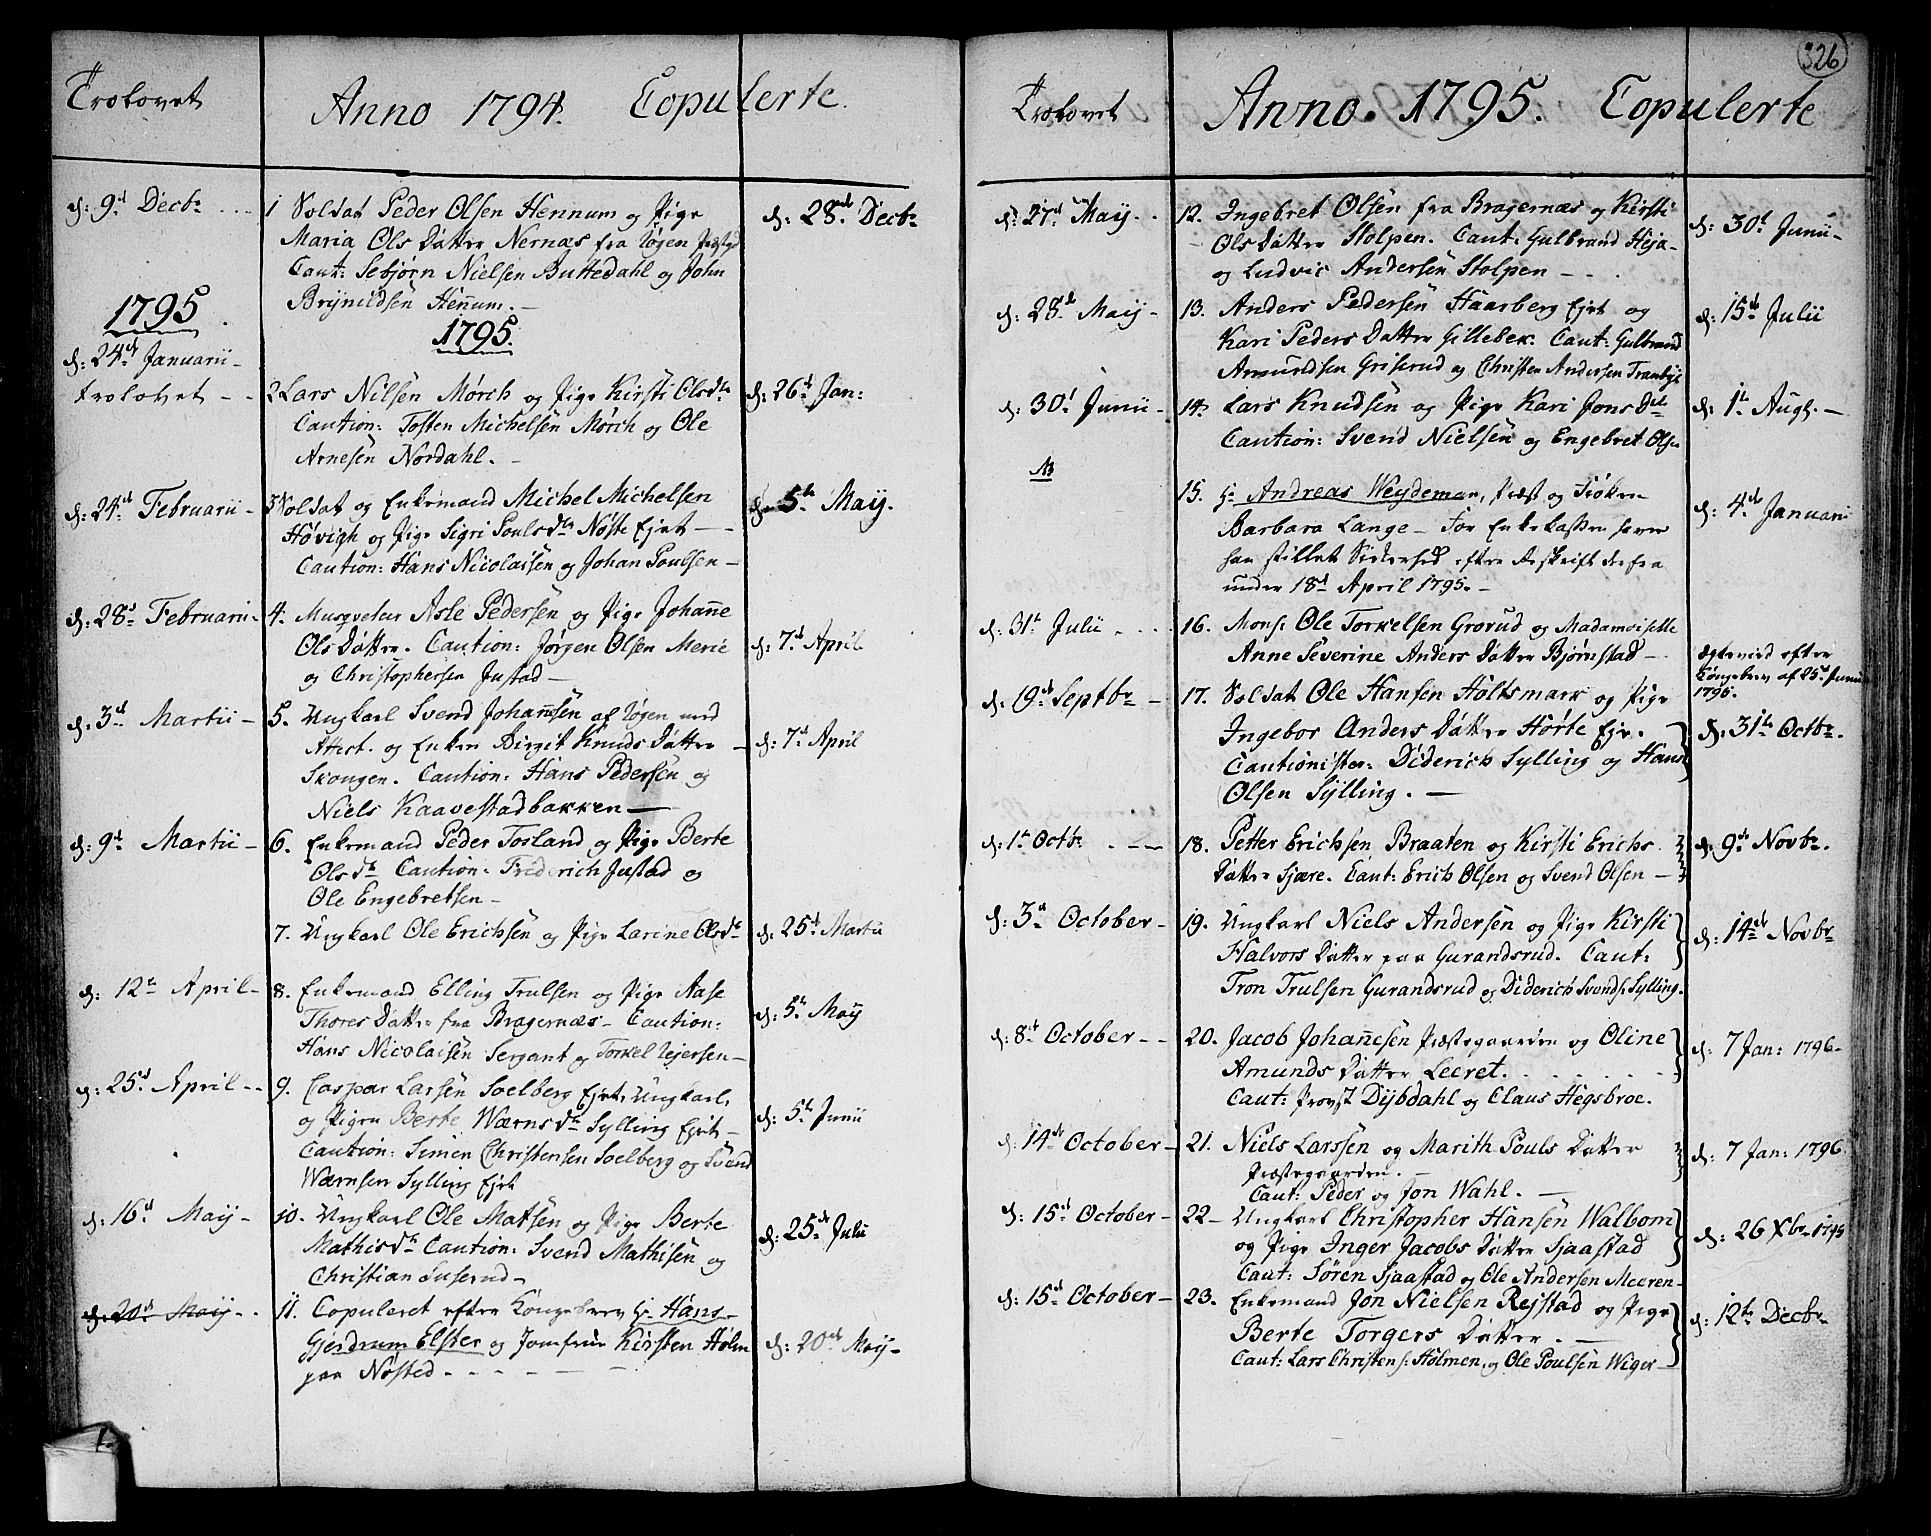 Trolovet
Anno 1794. Copulerte.
d: 9d Decbr
1 Soldat Peder Olsen Hennum og Pige
Maria Ols Datter Nernæs fra Røgen Præstgd
Caut: Sebjørn Nielsen Buttedahl og John
Brynildsen Hennum. -
d: 28de Decbr
1795
1795.
d: 24d Januarii -
trolovet - -
2 Lars Nilsen Mørch og Pige Kirsti Olsdtr
Caution: Tosten Michelsen Mørch og Ole
Arnesen Nordahl. -
d: 26d Jan:
d: 24d Februarii -
3 Soldat og Enkemand Michel Michelsen
Høvigh og Pige Sigri Poulsdtr Nøste Ejet - -
Caution: Hans Nicolaisen og Johan Poulsen -
d: 5te Maij.
d: 28d Februarii -
4. Musqveteur Asle Pedersen og Pige Johanne
Ols Datter. Caution: Jørgen Olsen Merie
og Christophersen Justad -
d: 7d April
d: 3d Martii -
5. Ungkarl Svend Johannesen af Røgen med
Attest. og Enken Birgit Knuds Datter -
Skongen. Caution: Hans Pedersen og
Niels Kaavestadbakken -
d: 7d April
d: 9d Martii -
6. Enkemand Peder Tosland og Pige Berte
Olsdtr Caution: Friderich Justad og
Ole Engebretsen -
7. Ungkarl Ole Erichsen og Pige Larine Olsdtr
d: 25d Martii
d: 12te April -
8. Enkemand Elling Trulsen og Pige Aase
Thores Datter fra Bragernæs - Caution:
Hans Nicolaisen Sergant og Torkel Ejersen -
d: 5te Maij
d: 25d April - -
9. Caspar Larsen Soelberg Ejet, Ungkarl,
og Pigen Berte Wærnsdtr Sylling Ejet -
Caution: Simen Christensen Soelberg og Svend
Wærnsen Sylling Ejet
d: 5te Junii
d: 16d Maij -
10. Ungkarl Ole Matsen og Pige Berte
Mathisdtr Caution: Svend Mathisen og
Christian Suserud -
d: 25de Julii
d: 20d Maij - -
11. Copuleret efter Kongebrev Hr. Hans
Gjerdrum Elster og Jomfrue Kirsten Holm
paa Nøsted - - - - - -
d: 20de Maij -
326
Trolovet
Anno. 1795. Copulerte
d: 27d Maij. -
12. Ingebret Olsen fra Bragernæs og Kirsti
Ols Datter Stolpen. Caut: Gulbrand Heja
og Ludvic Andersen Stolpen -
d: 30d Junii -
d: 28d Maij -
13. Anders Pedersen Haarberg Ejet og
Kari Peders Datter Gillebek. Caut: Gulbrand
Amundsen Griserud og Christen Andersen Tranbye
d: 15de Julii
d: 30d Junii -
14. Lars Knudsen og Pige Kari Jonsdtr
Caution: Svend Nielsen og Engebret Ols-
d: 1te Augs. -
NB
15. Hr Andreas Weydeman, Præst og Frøken
Barbara Lange - For Enke Kassen haver
han stillet Sickerhed efter Reskript derfra
under 18d April 1795. -
d: 4d Januarii
d: 31te Julii - - -
16. Mons: Ole Torkelsen Grorud og Madamoiselle
Anne Severine Anders Datter Bjørnstad -
Ægteviet efter
Kongebrev af 25d Junii
1795.
d: 19de Septbr -
17. Soldat Ole Hansen Holtsmark og Pige
Ingebor Anders Datter Hørte Eje.
Cautionister: Diderich Sylling og Hans
Olsen Sylling. -
d. 31te Octbr.
d: 1te Octbr - - -
18. Petter Erichsen Braaten og Kirsti Erichs
Datter Sjære. Caut: Erich Olsen og Svend Olsen -
d: 9de Novbr.
d: 3d October -
19. Ungkarl Niels Andersen og Pige Kirsti
Halvors Datter paa Gurandsrud. Caut:
Tron Trulsen Gurandsrud og Diderich Svends: Sylling.
d: 14de Novbr
d: 8d October - -
20. Jacob Johannesen Præstegaarden og Oline
Amunds Datter Leeret. - - - - -
Caut: Provst Dijbdahl og Claus Hegsbroe.
d: 7 Jan: 1796 -
d: 14de October -
21. Niels Larssen og Marith Pouls Datter
Præstegaarden. -
Caut: Peder og Jon Wahl. -
d: 7 Jan: 1796
d: 15d October -
22 - Ungkarl Christopher Hansen Walbom
og Pige Inger Jacobs Datter Sjaastad
Caut: Søren Sjaastad og Ole Andersen Meeren -
d: 26 Xbr 1795
d: 15d October -
23. Enkemand Jon Nielsen Rejstad og Pige
Berte Torgers Datter. -
Caut: Lars Christens: Holmen, og Ole Poulsen Wiger -
d: 12te Decbr